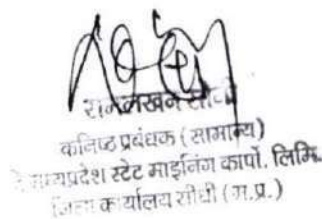 रामलखन
कनिष्ठ प्रबंधक (सामान्य)
मध्यप्रदेश स्टेट माइनिंग कार्पो. लिमि.
जिला कार्यालय सीधी (म.प्र.)